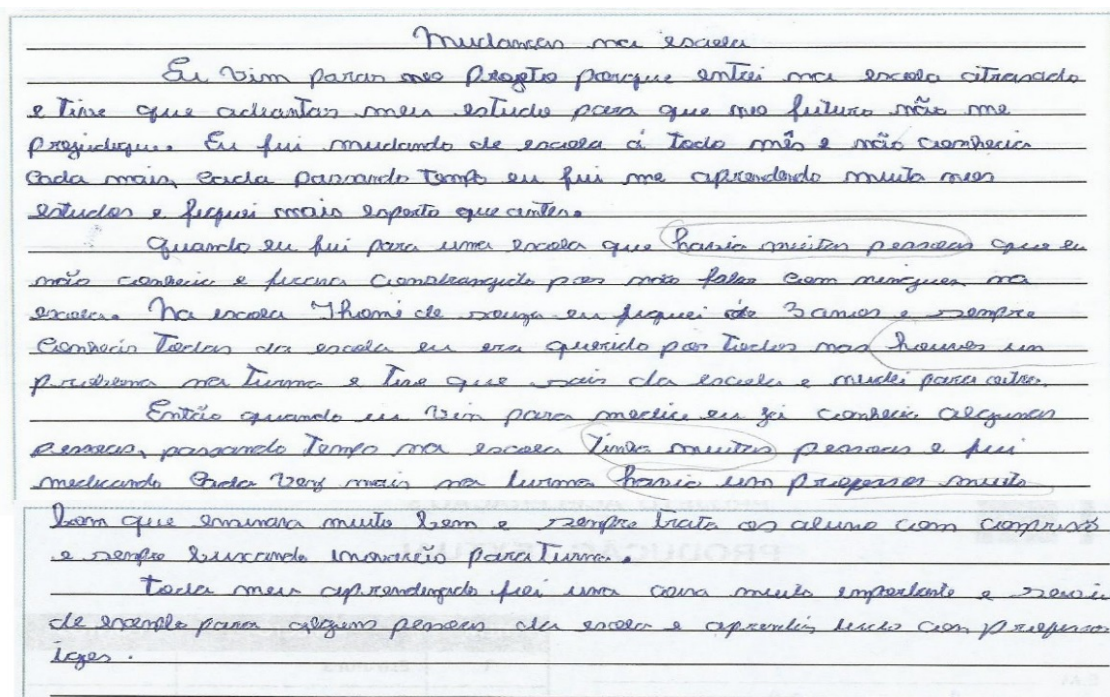 Mudanças na escola
Eu vim parar no Progeto porque entrei na escola atrasado
e tive que adiantar meu estudo para que no futuro não me
prejudique. Eu fui mudando de escola á todo mês e não conhecia
cada mais, cada passando tempo eu fui me aprendendo muita meus
estudos e fiquei mais esperto que antes.
Quando eu fui para uma escola que havia muitas pessoas que eu
não conhecia e ficava constrangido por não falar com ninguem na
escola. Na escola Thomé de souza eu fiquei até 3 anos e sempre
conhecia Todas da escola eu era querido por Todos mas houves um
problema na Turma e Tive que sair da escola e mudei para outra.
Então quando eu vim para eu ja conhecia algumas
pessoas, passando Tempo na escola Tinha muitas pessoas e fui
cada vez mais na turma havia um professor muito
bom que ensinava muito bem e sempre trata os aluno com
e sempre buscando inovação para Turma.
Toda meu aprendizado foi uma coisa muito importante e
de exemplo para alguns pessoas da escola e aprendi tudo com professor